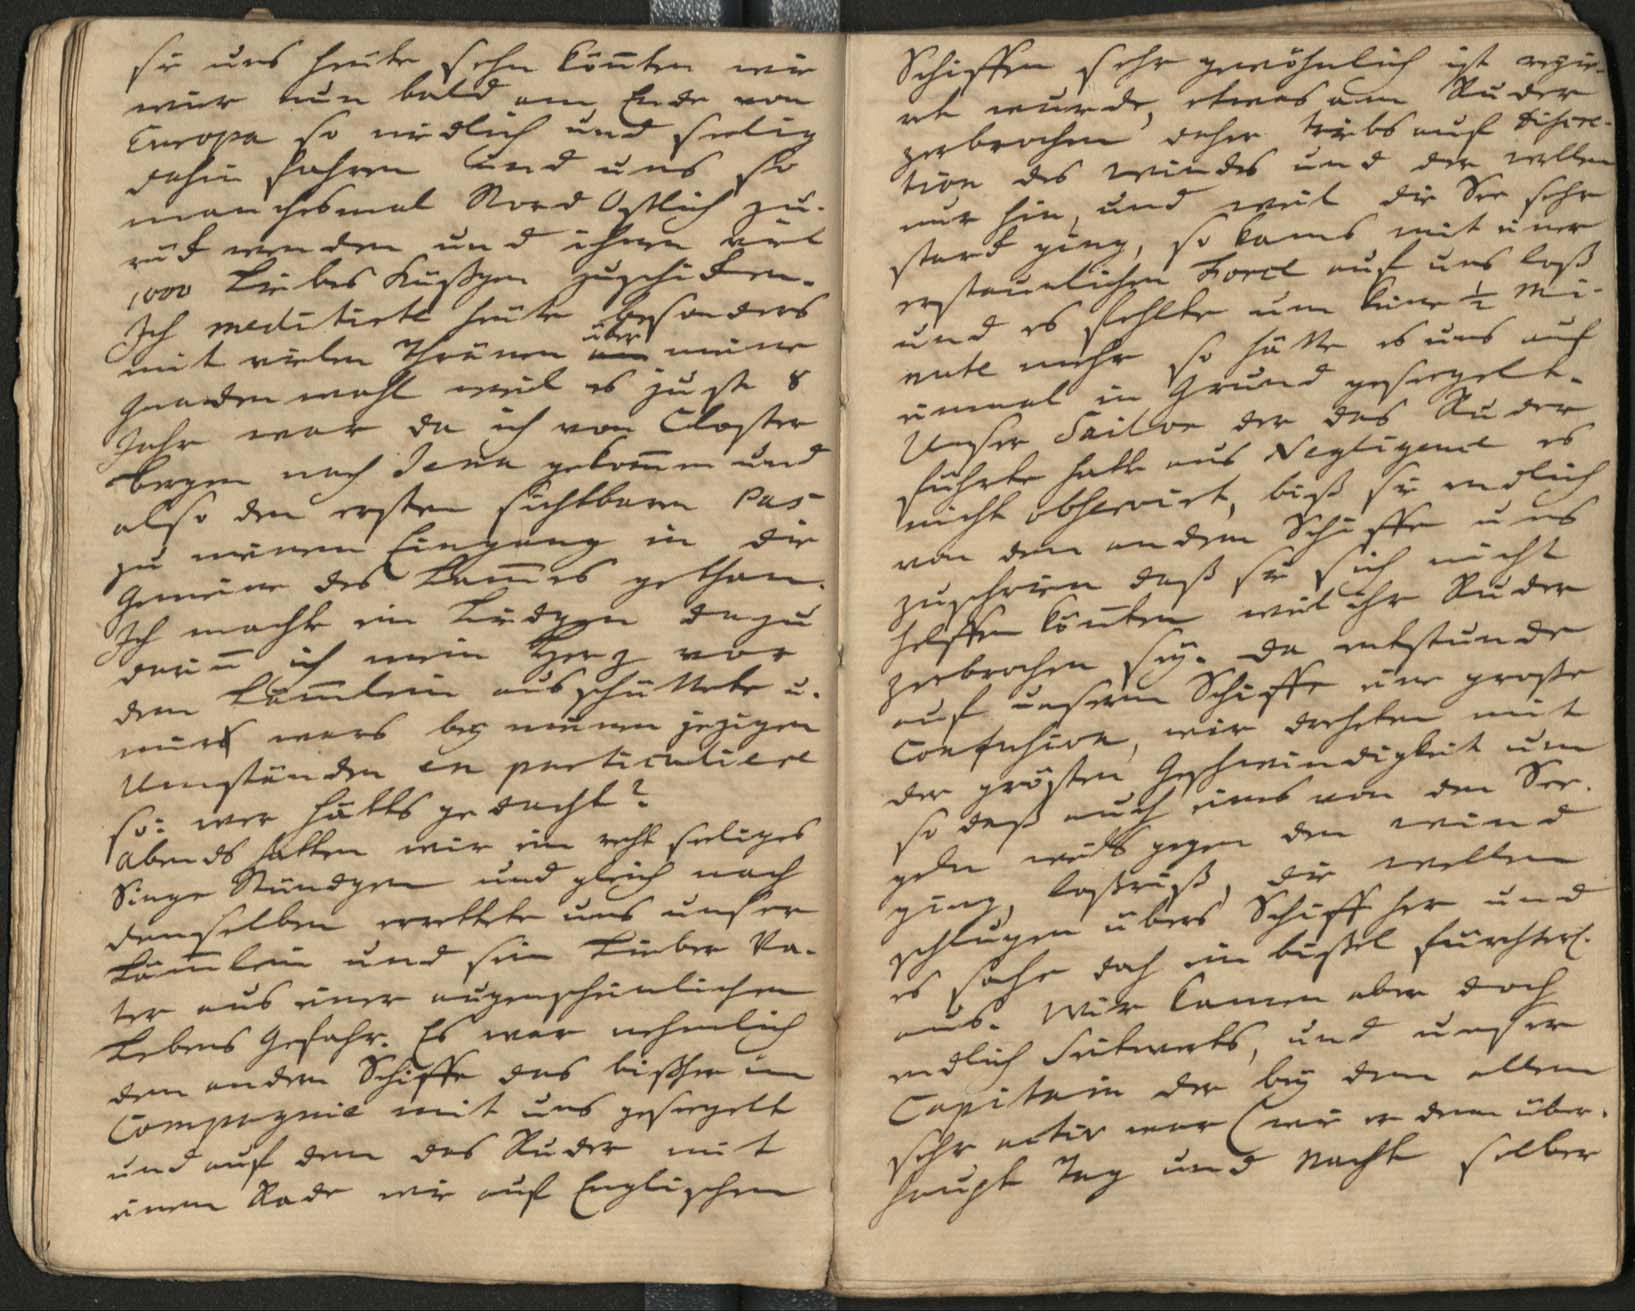 sie uns heute sehn könten wie
wir nun bald am Ende von
Europa so niedlich und seelig
dahin fahren und uns so
manchesmal Nord Ostlich zu-
rück wenden und ihnen viel
1000 Liebes Küßgen zuschicken.
Ich meditirte heute besonders
mit vielen Thränen über meine
Gnadenwahl weil es just 8
Jahr war da ich von Closter
Bergen nach Jena gekom̄en und
also den ersten sichtbaren Pas
zu meinem Eingang in die
Gemeine des Lam̄es gethan.
Ich machte ein Liedgen dazu
darin̄ ich mein Herz vor
dem Läm̄lein ausschüttete u.
mirs wars bey meinen jezigen
Umständen en particuliere
so: wer hätts gedacht?
Abends hatten wir ein recht seliges
Singe Stündgen und gleich nach
demselben errettete uns unser
Läm̄lein und sein Lieber Va-
ter aus einer augenscheinlichen
Lebens Gefahr. Es war nehmlich
dem andern Schiffe das bißher in
Compagnie mit uns gesegelt
und auf dem das Ruder mit
einem Rade wie auf Englischen
Schiffen sehr gewöhnlich ist regie-
ret wurde, etwas am Ruder
zerbrochen, daher triebs auf discre-
tion des Windes und der Wellen
nur hin, und weil die See sehr
starck ging, so kams mit einer
erstaunlichen Force auf uns loß
und es fehlte um keine ½ Mi-
nute mehr so hätte es uns auf
einmal in Grund gesegelt.
Unser Sailor der das Ruder
führte hatte aus Negligence es
nicht observirt, biß sie endlich
von dem andern Schiffe uns
zuschrien daß sie sich nicht
helffen könten weil ihr Ruder
zerbrochen sey. Da entstunde
auf unserm Schiffe eine große
Confusion, wir drehten mit
der grösten Geschwindigkeit um
so daß auch eines von den See-
geln weils gegen den Wind
ging, loßriß, die Wellen
schlugen übers Schiff her und
es sahe doch ein bißel fürchterl.
aus. Wir kamen aber doch
endlich Seitwerts, und unser
Capitain der bey dem allem
sehr activ war (wie er denn über-
haupt Tag und Nacht selber